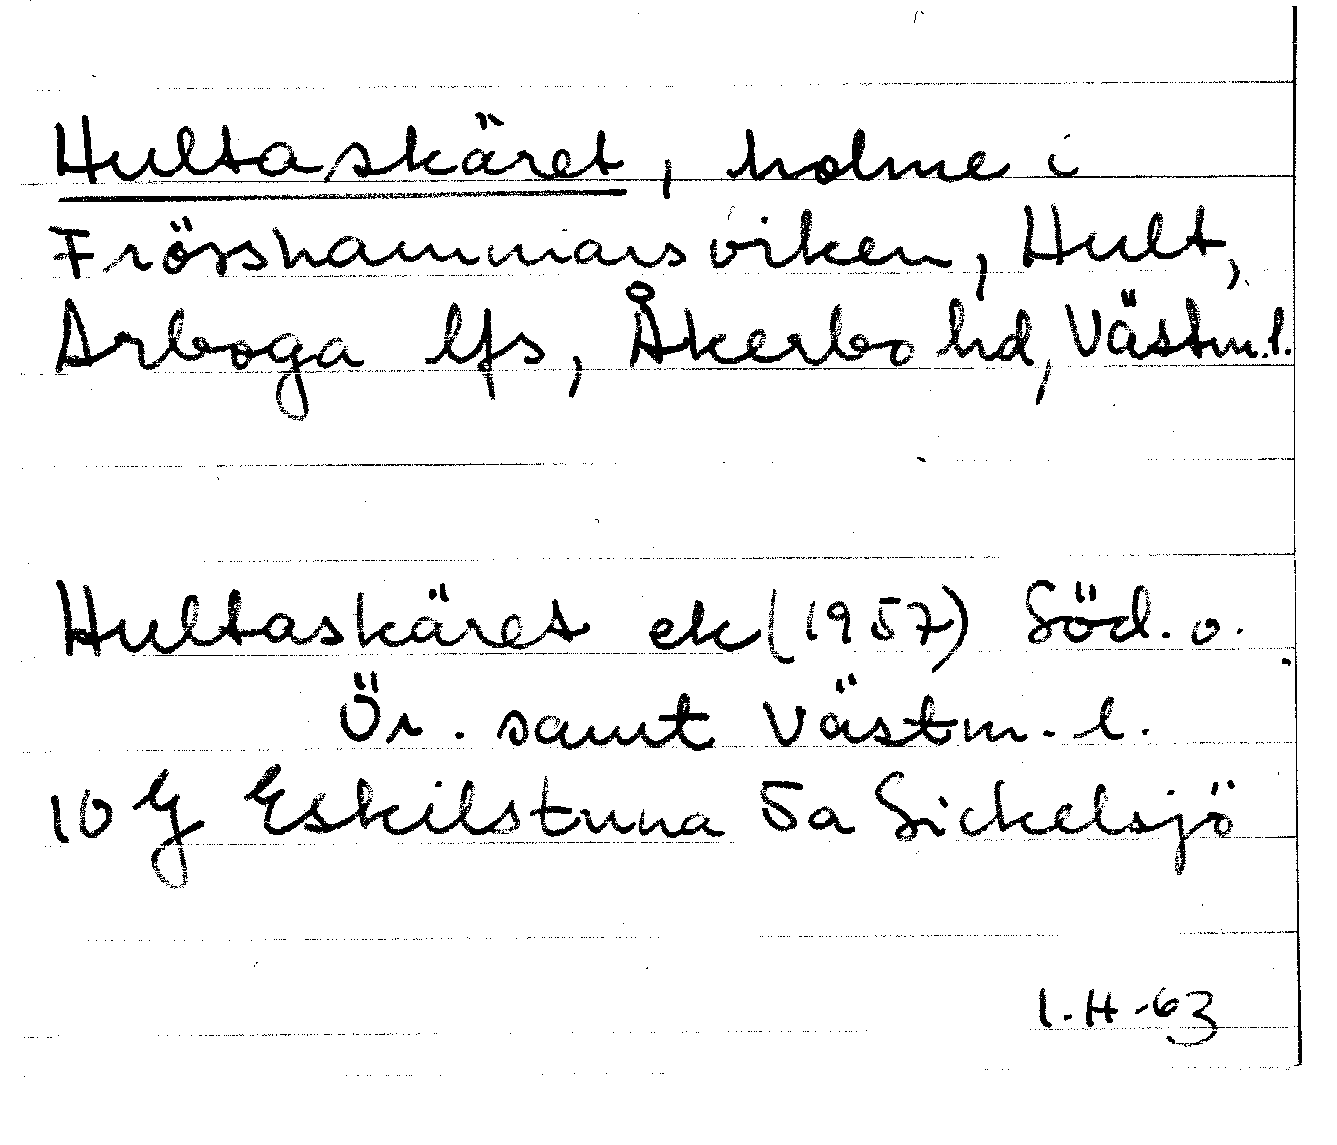 Hultaskäret, holme i
Frösshammarsviken, Hult,
Arboga lfs, Åkerbo hd, Västm.l.
Hultaskäret ek (1957) Söd. o.
Ör. samt Västm. l.
10 G Eskilstuna 5a Sickelsjö
I.H-63